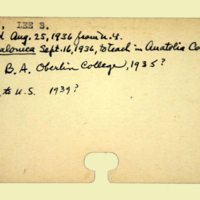 LEE S.
Aug. 25, 1936 from N.Y.
Sept. 16, 1936, to teach in Anatolia Co
B.A. Oberlin College, 1935?
to U.S. 1939?